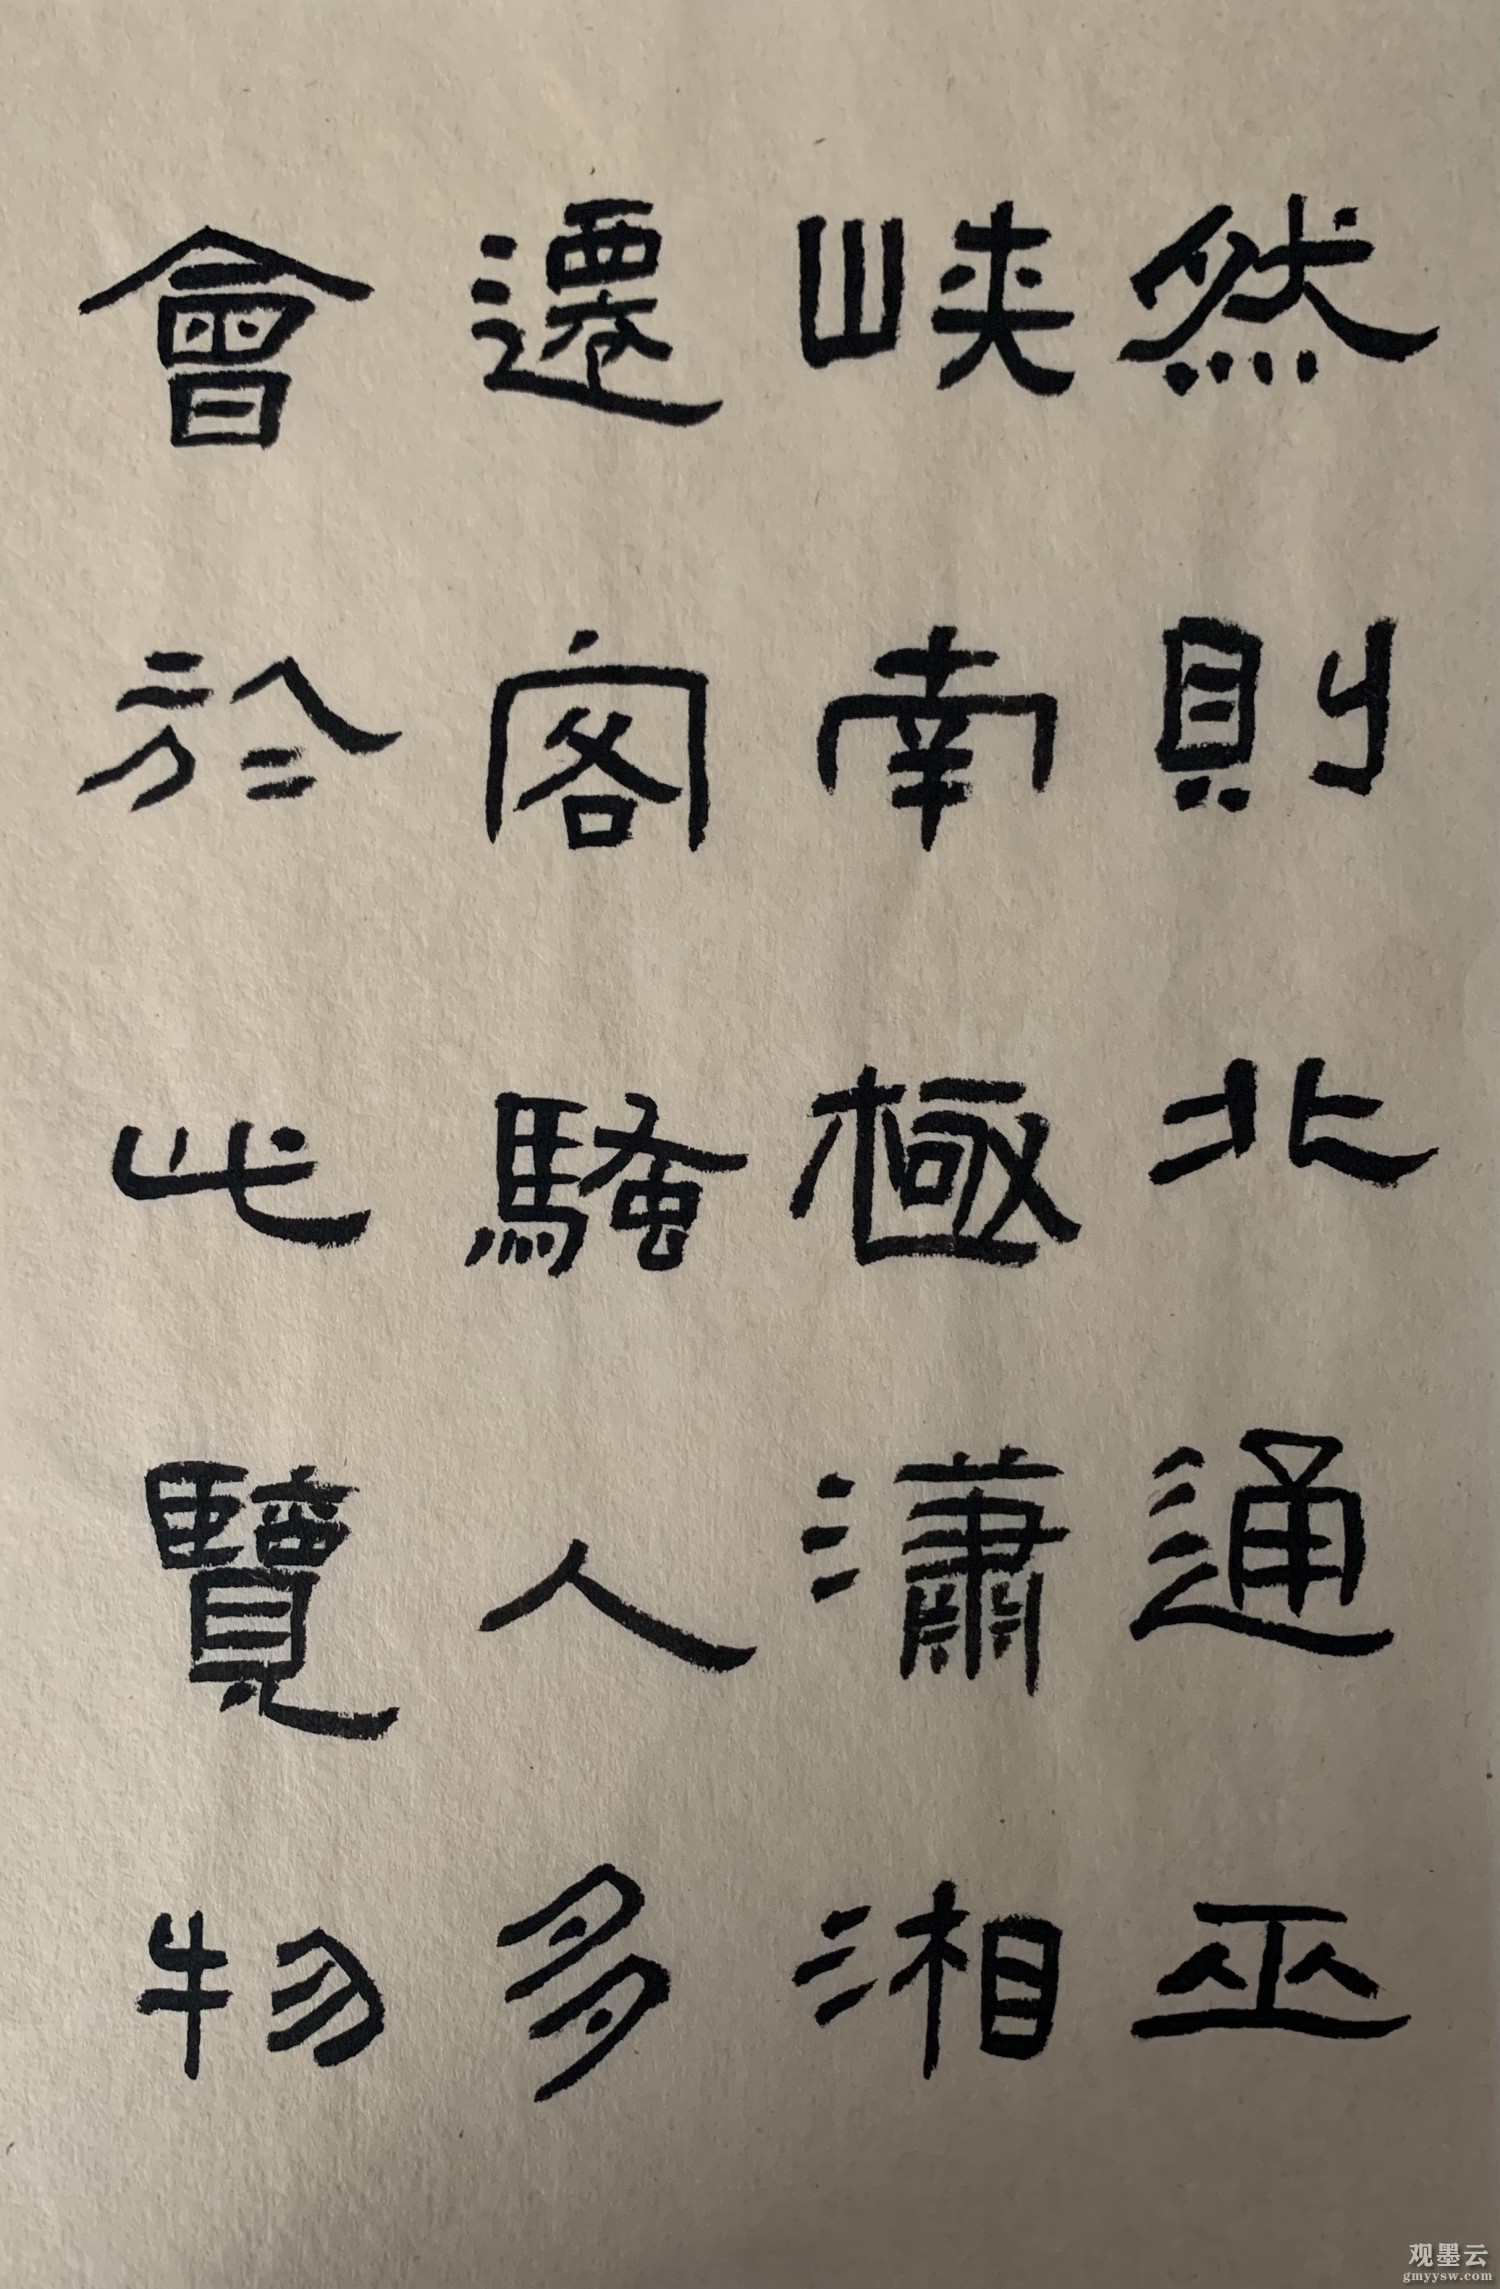 然則北通巫
峽南極瀟湘
遷客騷人多
會於此覽物
观墨云
gmyysw.com